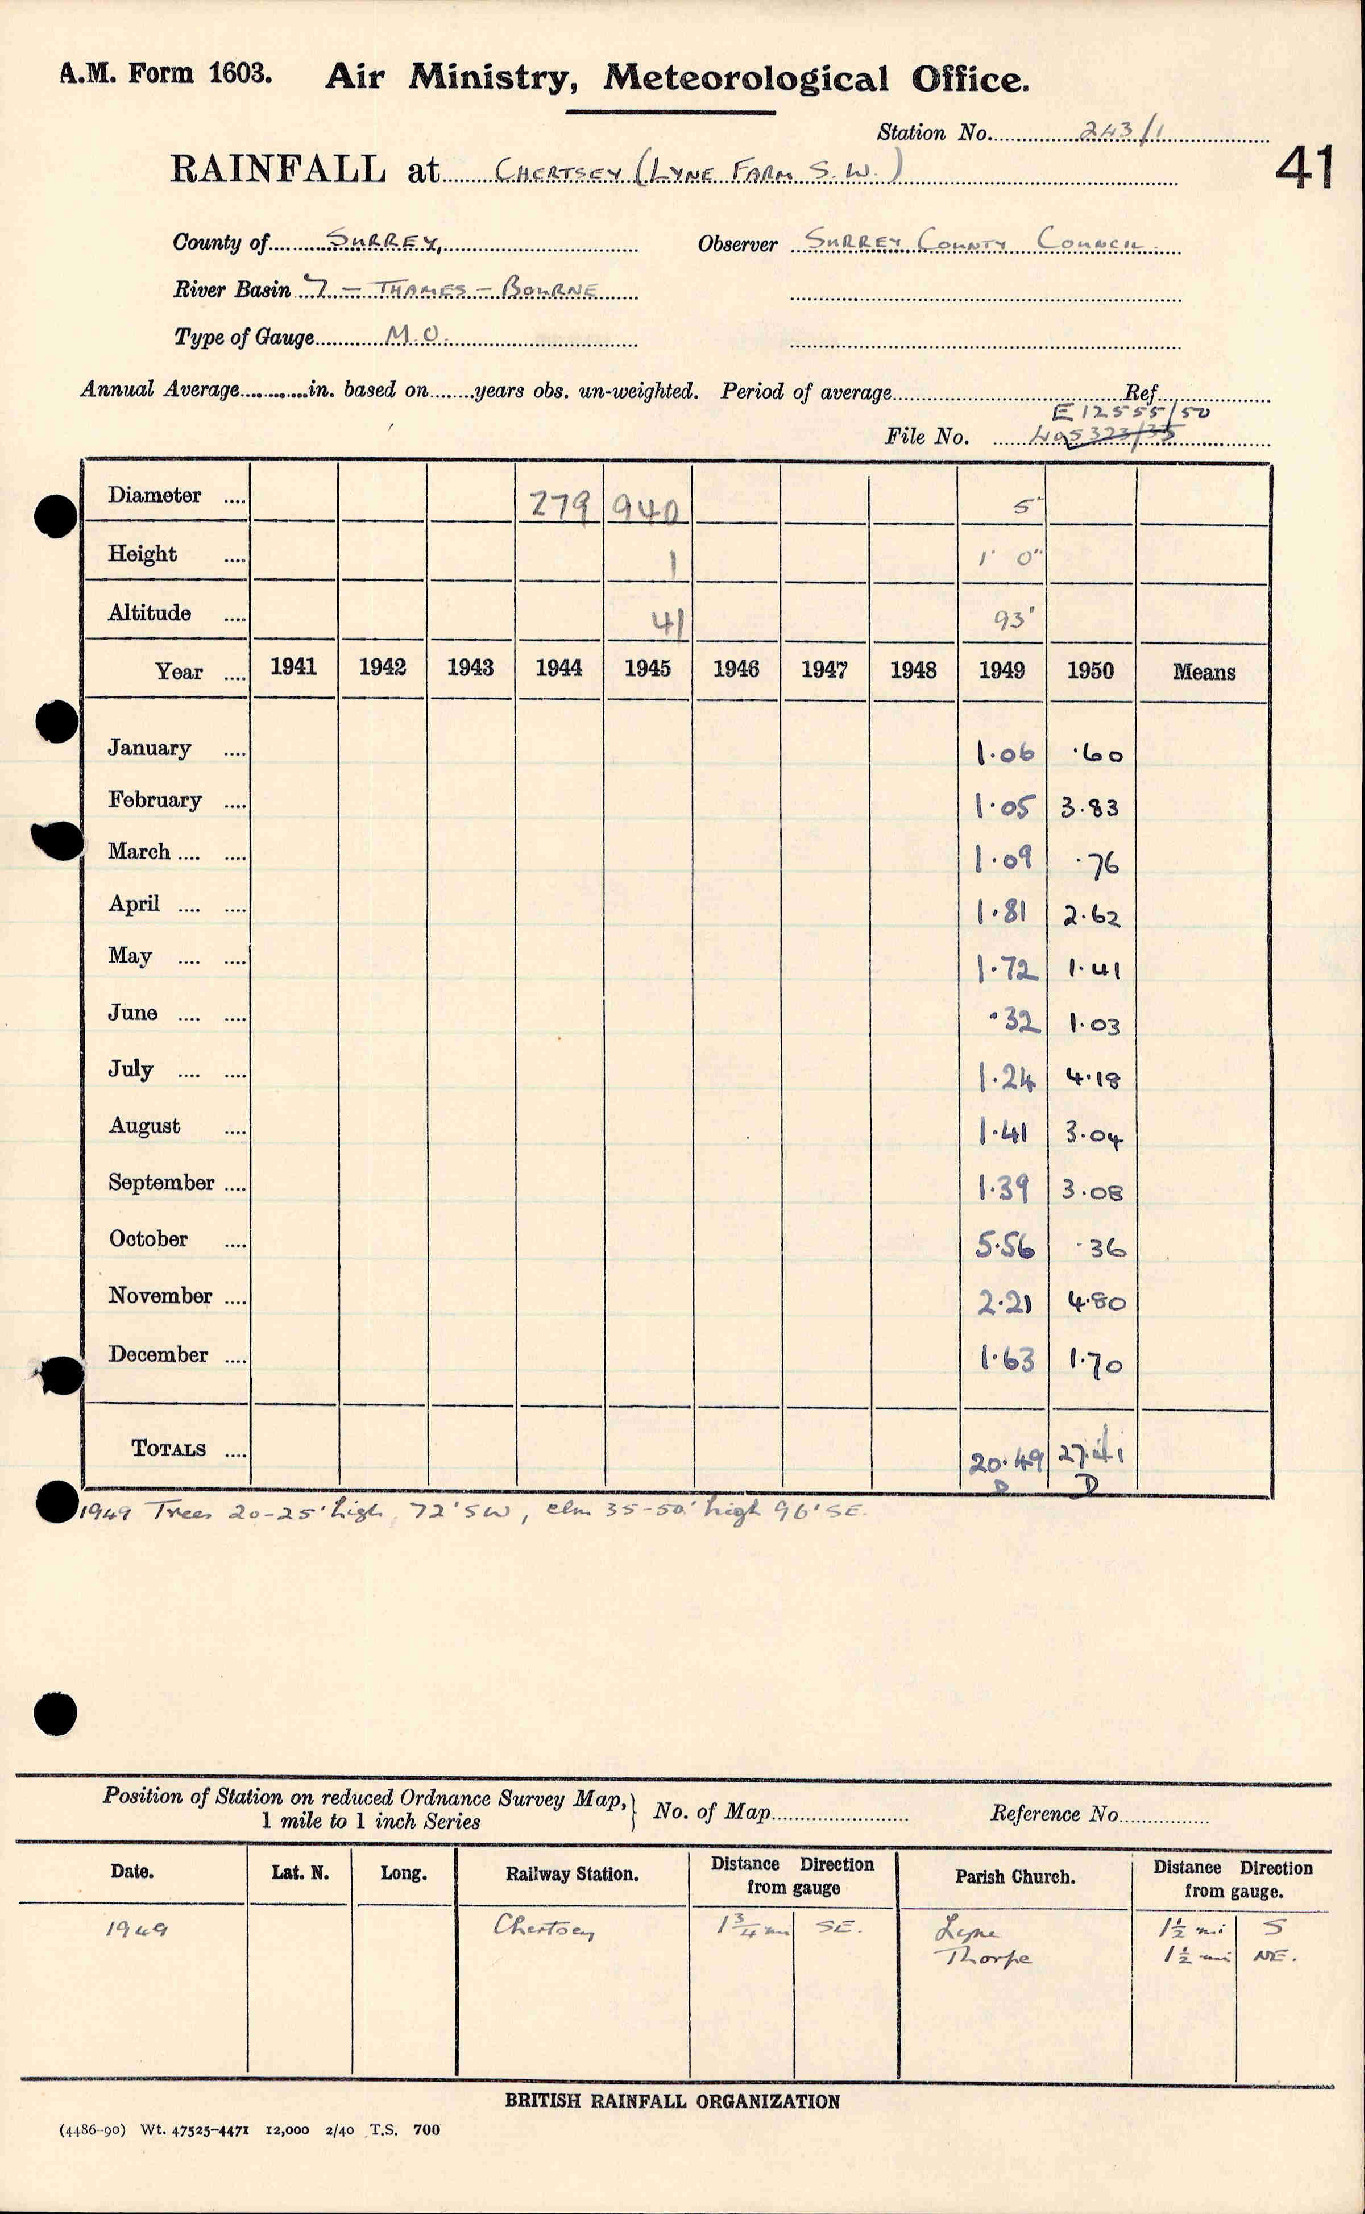 A.M. Form 1603. Air Ministry, Meteorological Office.
Station No. 243/1
41
RAINFALL at CHERTSEY (LYNE FARM S.W.)
County of SURREY, Observer SURREY COUNTY COUNCIL
River Basin 7 – THAMES – BOURNE
Type of Gauge M.O.
Annual Average in. based on years obs. un-weighted. Period of average Ref
E 12555/50
File No.
Diameter 279 940 5"
Height 1 1' 0"
Altitude 41 93'
Year 1941 1942 1943 1944 1945 1946 1947 1948 1949 1950 Means
January 1.06 .60
February 1.05 3.83
March 1.09 .76
April 1.81 2.62
May 1.72 1.41
June .32 1.03
July 1.24 4.18
August 1.41 3.04
September 1.39 3.08
October 5.56 .36
November 2.21 4.80
December 1.63 1.70
TOTALS 20.49 27.41
D D
1949 Trees 20-25' high, 72' SW, elm 35-50' high 96' SE.
Position of Station on reduced Ordnance Survey Map, } No. of Map Reference No.
1 mile to 1 inch Series
Date. Lat. N. Long. Railway Station. Distance Direction from gauge Parish Church. Distance Direction from gauge.
1949 Chertsey 1¾ mi SE. Lyne 1½ mi S
Thorpe 1½ mi NE.
BRITISH RAINFALL ORGANIZATION
(4486-90) Wt. 47525-4471 12,000 2/40 T.S. 700